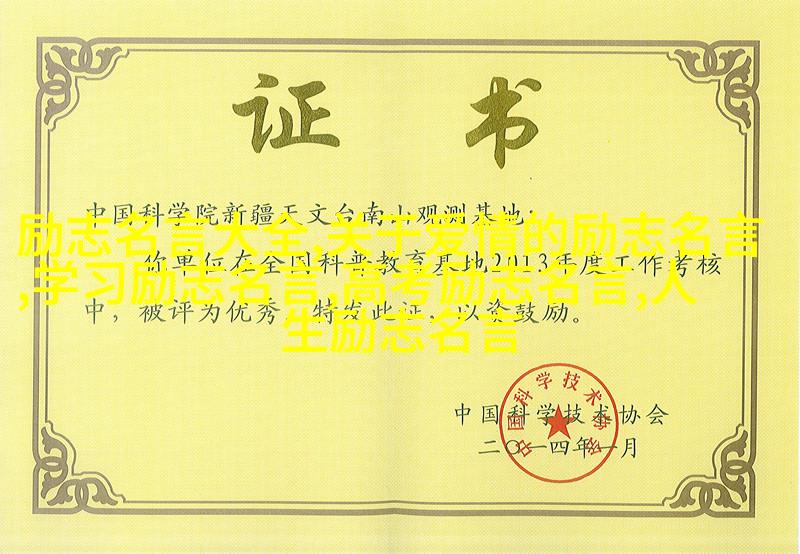 证 书
中国科学院新疆天文台南山观测基地:
励志名言大全,关于爱情的励志名言
你单位在全国科普教育基地2013年度工作考核
,学习励志名言,高考励志名言,人
中，被评为优秀。特发此证，以资鼓励。
生励志名言
中国科学技术协会
中国科学技术协会
二〇一四年一月